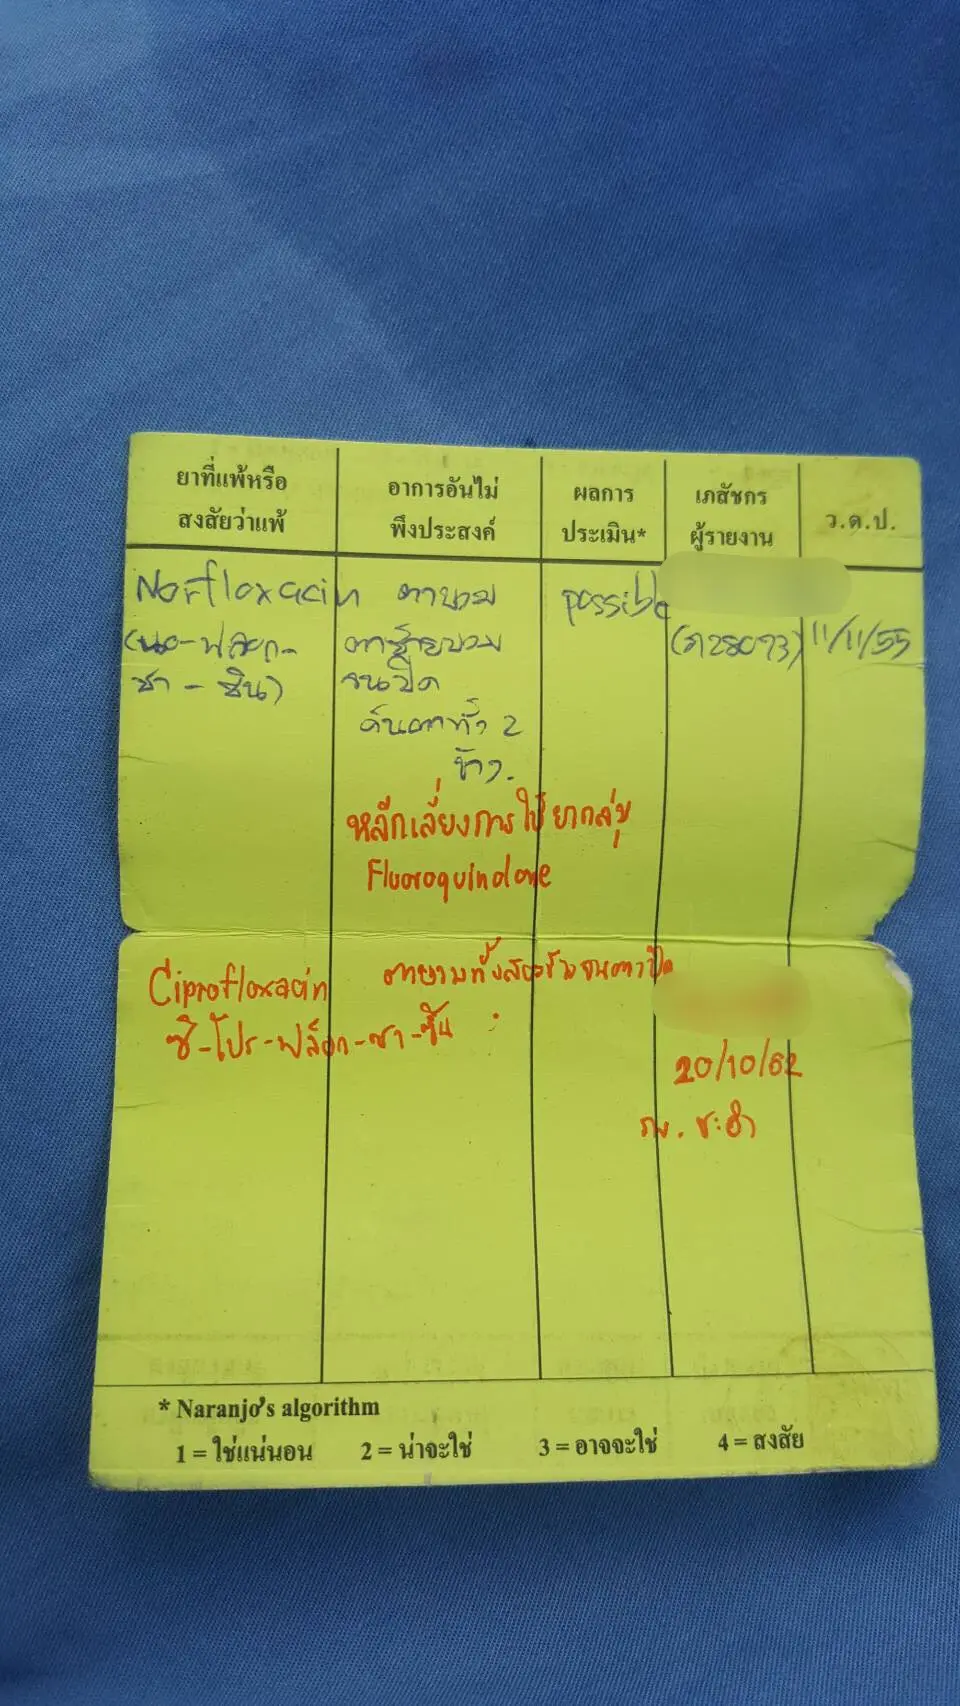 ยาที่แพ้หรือ
สงสัยว่าแพ้
อาการอันไม่
พึงประสงค์
ผลการ
ประเมิน*
เภสัชกร
ผู้รายงาน
ว.ด.ป.
Norfloxacin
(นอ-ฟลอก-
ซา-ซิน)
ตาบวม
ตาซ้ายบวม
จนปิด
คันตาทั้ง 2
ข้าง.
possible
(ภ28093)
11/11/55
หลีกเลี่ยงการใช้ยากลุ่ม
Fluoroquinolone
Ciprofloxacin
ซิ-โปร-ฟล็อก-ซา-ซิน
ตาบวมทั้งสองข้างจนตาปิด
20/10/62
รพ. ชะอำ
* Naranjo's algorithm
1 = ใช่แน่นอน 2 = น่าจะใช่ 3 = อาจจะใช่ 4 = สงสัย